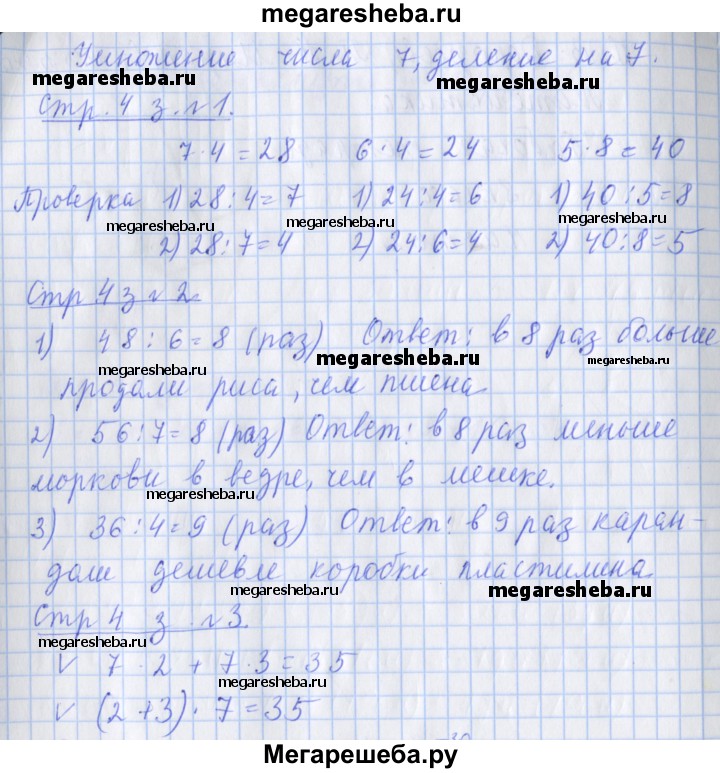 megaresheba.ru
Умножение числа 7, деление на 7.
megaresheba.ru megaresheba.ru
Стр. 4 з. №1.
7·4=28 6·4=24 5·8=40
Проверка 1) 28:4=7 1) 24:4=6 1) 40:5=8
megaresheba.ru megaresheba.ru megaresheba.ru
2) 28:7=4 2) 24:6=4 2) 40:8=5
Стр 4 з №2.
1) 48:6=8 (раз) Ответ: в 8 раз больше
megaresheba.ru megaresheba.ru megaresheba.ru
продали риса, чем пшена.
2) 56:7=8 (раз) Ответ: в 8 раз меньше
моркови в ведре, чем в мешке.
megaresheba.ru
3) 36:4=9 (раз) Ответ: в 9 раз каран-
даш дешевле коробки пластилина
megaresheba.ru
Стр 4 з. №3.
megaresheba.ru
v 7·2+7·3=35
megaresheba.ru
v (2+3)·7=35
Мегарешеба.ру